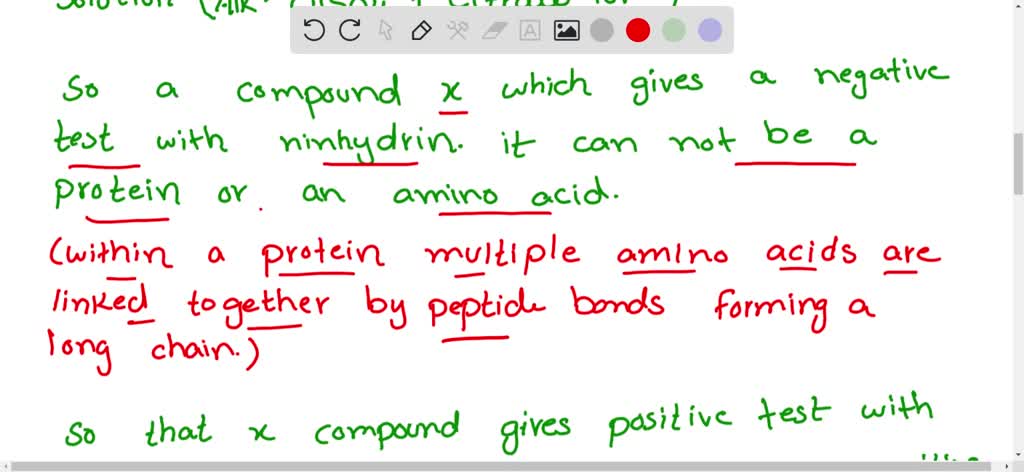 So a compound x which gives a negative
test with ninhydrin. it can not be a
protein or an amino acid.
(within a protein multiple amino acids are
linked together by peptide bonds forming a
long chain.)
So that x compound gives positive test with